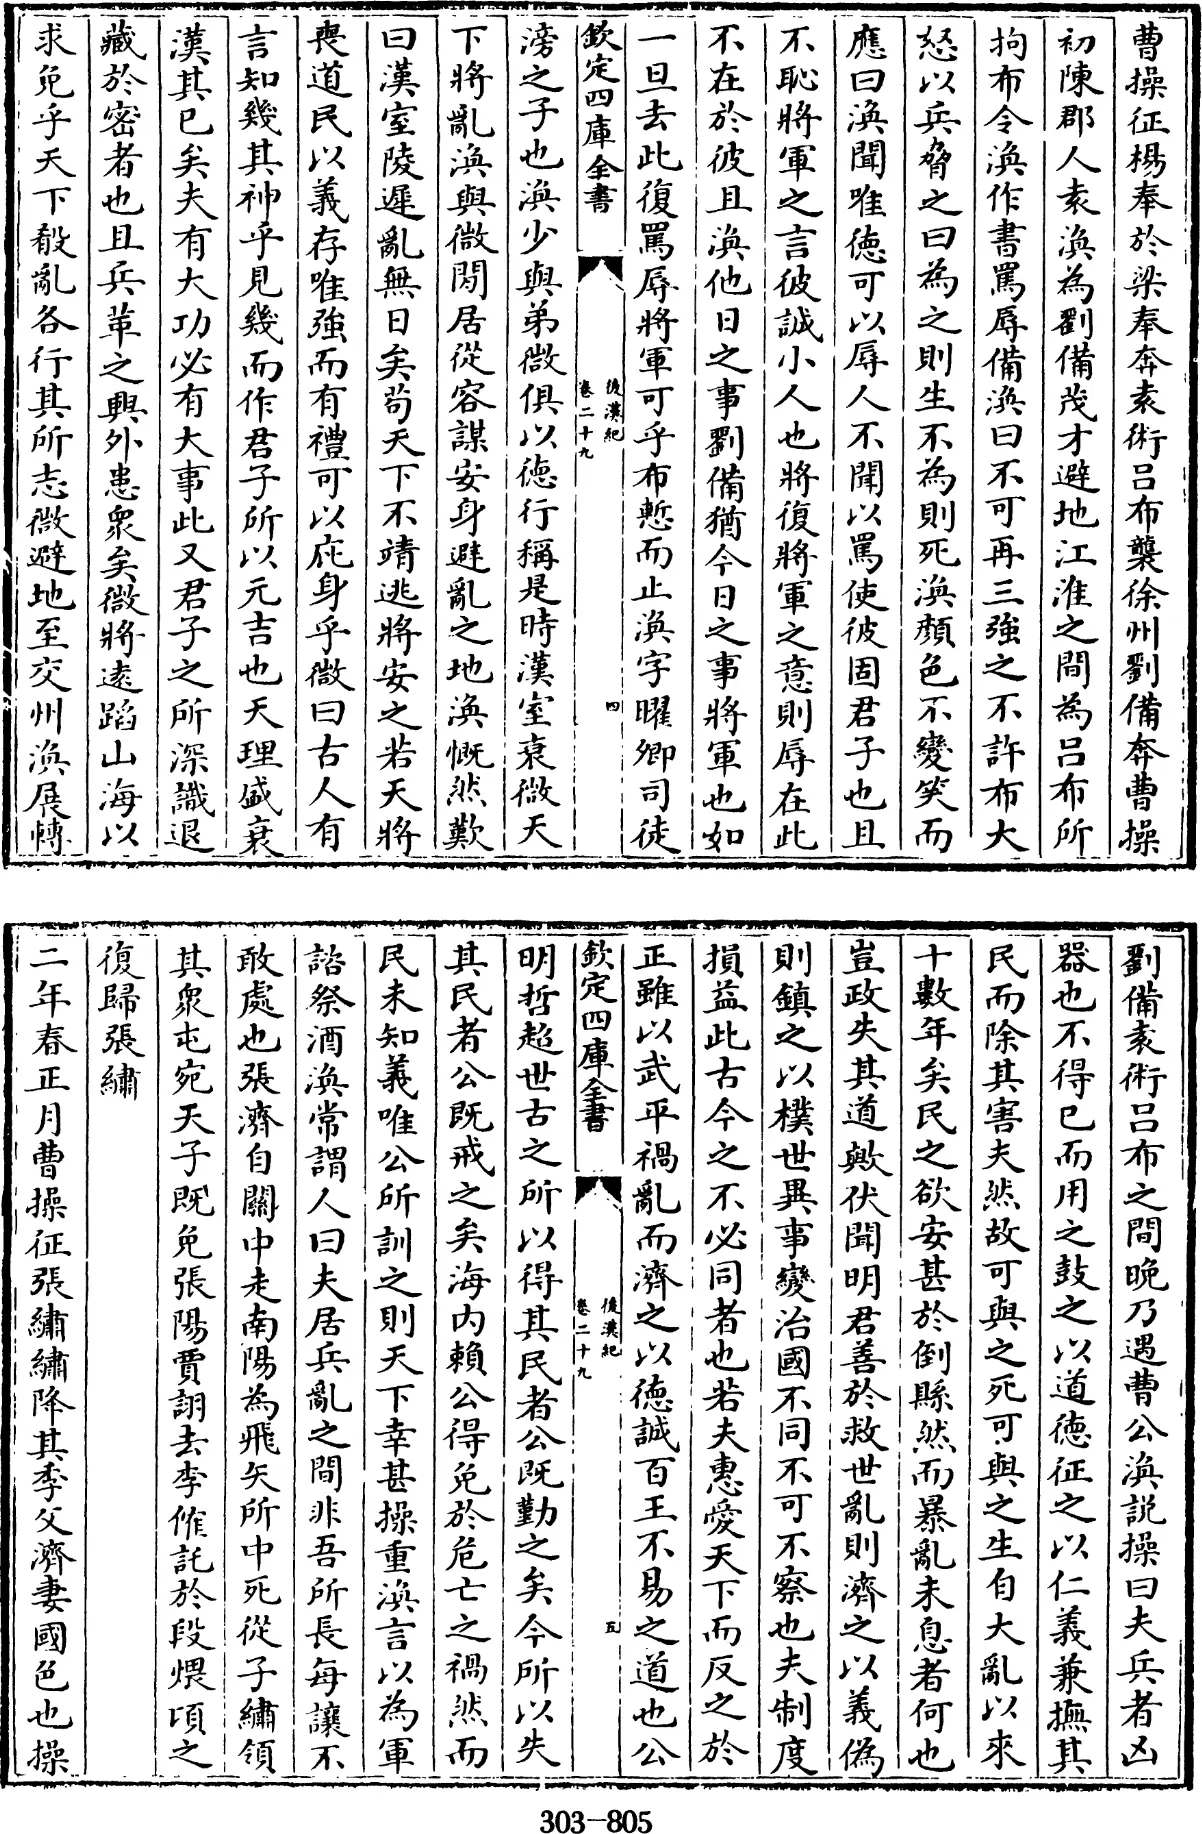 曹操征楊奉於梁奉奔袁術呂布襲徐州劉備奔曹操
初陳郡人袁渙為劉備茂才避地江淮之間為呂布所
拘布令渙作書罵辱備渙曰不可再三強之不許布大
怒以兵脅之曰為之則生不為則死渙顏色不變笑而
應曰渙聞唯德可以辱人不聞以罵使彼固君子也且
不恥將軍之言彼誠小人也將復將軍之意則辱在此
不在於彼且渙他日之事劉備猶今日之事將軍也如
一旦去此復罵辱將軍可乎布慙而止渙字曜卿司徒
欽定四庫全書
後漢紀
卷二十九
四
滂之子也渙少與弟微俱以德行稱是時漢室衰微天
下將亂渙與微閒居從容謀安身避亂之地渙慨然歎
曰漢室陵遲亂無日矣苟天下不靖逃將安之若天將
喪道民以義存唯強而有禮可以庇身乎微曰古人有
言知幾其神乎見幾而作君子所以元吉也天理盛衰
漢其已矣夫有大功必有大事此又君子之所深識退
藏於密者也且兵革之興外患衆矣微將遠蹈山海以
求免乎天下殽亂各行其所志微避地至交州渙展轉
劉備袁術呂布之間晚乃遇曹公渙說操曰夫兵者凶
器也不得已而用之鼓之以道德征之以仁義兼撫其
民而除其害夫然故可與之死可與之生自大亂以來
十數年矣民之欲安甚於倒縣然而暴亂未息者何也
豈政失其道歟伏聞明君善於救世亂則濟之以義偽
則鎮之以樸世異事變治國不同不可不察也夫制度
損益此古今之不必同者也若夫惠愛天下而反之於
正雖以武平禍亂而濟之以德誠百王不易之道也公
欽定四庫全書
後漢紀
卷二十九
五
明哲超世古之所以得其民者公既勤之矣今所以失
其民者公既戒之矣海內賴公得免於危亡之禍然而
民未知義唯公所訓之則天下幸甚操重渙言以為軍
諮祭酒渙常謂人曰夫居兵亂之間非吾所長每讓不
敢處也張濟自關中走南陽為飛矢所中死從子繡領
其衆屯宛天子既免張陽賈詡去李傕託於段煨頃之
復歸張繡
二年春正月曹操征張繡繡降其季父濟妻國色也操
303-805